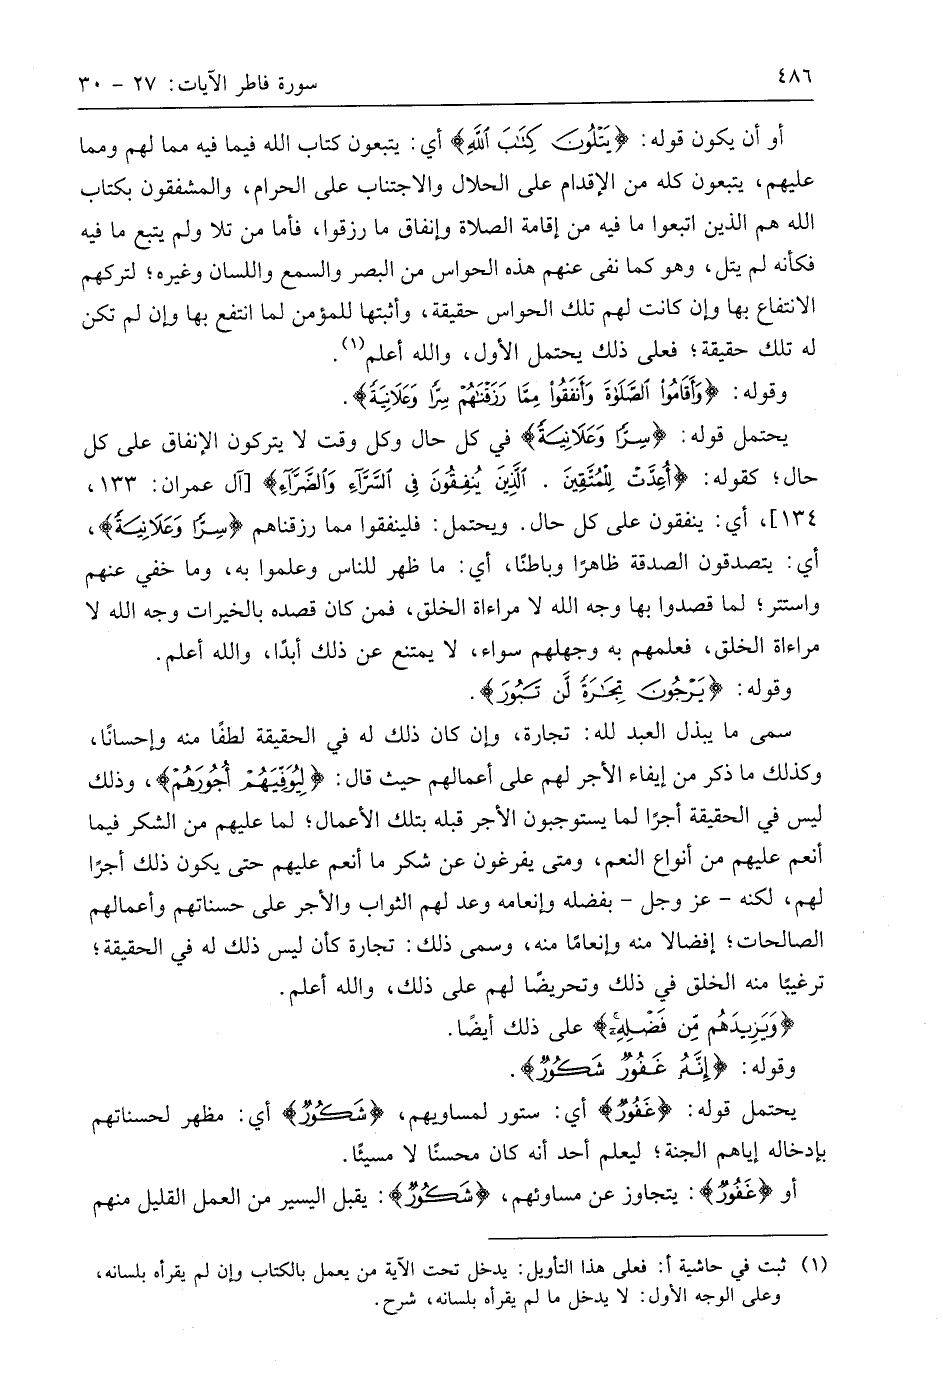 ٤٨٦
سورة فاطر الآيات: ٢٧ - ٣٠
أو أن يكون قوله: ﴿يَتْلُونَ كِتَٰبَ ٱللَّهِ﴾ أي: يتبعون كتاب الله فيما فيه مما لهم ومما
عليهم، يتبعون كله من الإقدام على الحلال والاجتناب على الحرام، والمشفقون بكتاب
الله هم الذين اتبعوا ما فيه من إقامة الصلاة وإنفاق ما رزقوا، فأما من تلا ولم يتبع ما فيه
فكأنه لم يتل، وهو كما نفى عنهم هذه الحواس من البصر والسمع واللسان وغيره؛ لتركهم
الانتفاع بها وإن كانت لهم تلك الحواس حقيقة، وأثبتها للمؤمن لما انتفع بها وإن لم تكن
له تلك حقيقة؛ فعلى ذلك يحتمل الأول، والله أعلم(١).
وقوله: ﴿وَأَقَامُوا۟ ٱلصَّلَوٰةَ وَأَنفَقُوا۟ مِمَّا رَزَقْنَٰهُمْ سِرًّا وَعَلَانِيَةً﴾.
يحتمل قوله: ﴿سِرًّا وَعَلَانِيَةً﴾ في كل حال وكل وقت لا يتركون الإنفاق على كل
حال؛ كقوله: ﴿أُعِدَّتْ لِلْمُتَّقِينَ . ٱلَّذِينَ يُنفِقُونَ فِى ٱلسَّرَّآءِ وَٱلضَّرَّآءِ﴾ [آل عمران: ١٣٣،
١٣٤]، أي: ينفقون على كل حال. ويحتمل: فلينفقوا مما رزقناهم ﴿سِرًّا وَعَلَانِيَةً﴾،
أي: يتصدقون الصدقة ظاهرًا وباطنًا، أي: ما ظهر للناس وعلموا به، وما خفي عنهم
واستتر؛ لما قصدوا بها وجه الله لا مراءاة الخلق، فمن كان قصده بالخيرات وجه الله لا
مراءاة الخلق، فعلمهم به وجهلهم سواء، لا يمتنع عن ذلك أبدًا، والله أعلم.
وقوله: ﴿يَرْجُونَ تِجَٰرَةً لَّن تَبُورَ﴾.
سمى ما يبذل العبد لله: تجارة، وإن كان ذلك له في الحقيقة لطفًا منه وإحسانًا،
وكذلك ما ذكر من إيفاء الأجر لهم على أعمالهم حيث قال: ﴿لِيُوَفِّيَهُمْ أُجُورَهُمْ﴾، وذلك
ليس في الحقيقة أجرًا لما يستوجبون الأجر قبله بتلك الأعمال؛ لما عليهم من الشكر فيما
أنعم عليهم من أنواع النعم، ومتى يفرغون عن شكر ما أنعم عليهم حتى يكون ذلك أجرًا
لهم، لكنه - عز وجل - بفضله وإنعامه وعد لهم الثواب والأجر على حسناتهم وأعمالهم
الصالحات؛ إفضالا منه وإنعامًا منه، وسمى ذلك: تجارة كأن ليس ذلك له في الحقيقة؛
ترغيبًا منه الخلق في ذلك وتحريضًا لهم على ذلك، والله أعلم.
﴿وَيَزِيدَهُم مِّن فَضْلِهِۦٓ﴾ على ذلك أيضًا.
وقوله: ﴿إِنَّهُۥ غَفُورٌ شَكُورٌ﴾.
يحتمل قوله: ﴿غَفُورٌ﴾ أي: ستور لمساويهم، ﴿شَكُورٌ﴾ أي: مظهر لحسناتهم
بإدخاله إياهم الجنة؛ ليعلم أحد أنه كان محسنًا لا مسيئًا.
أو ﴿غَفُورٌ﴾: يتجاوز عن مساوئهم، ﴿شَكُورٌ﴾: يقبل اليسير من العمل القليل منهم
(١) ثبت في حاشية أ: فعلى هذا التأويل: يدخل تحت الآية من يعمل بالكتاب وإن لم يقرأه بلسانه،
وعلى الوجه الأول: لا يدخل ما لم يقرأه بلسانه، شرح.